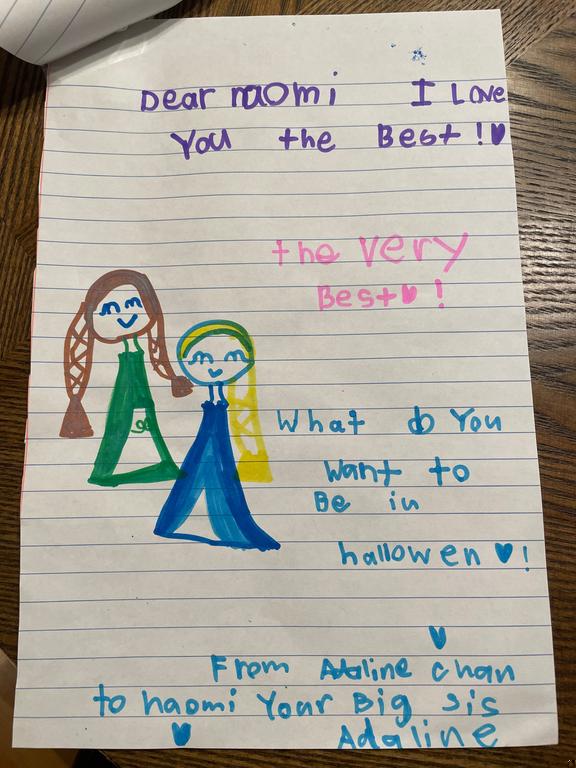 Dear naomi I Love
You the Best!
the very
Best!
What do You
Want to
Be in
hallowen!
From Adaline chan
to naomi Your Big sis
Adaline